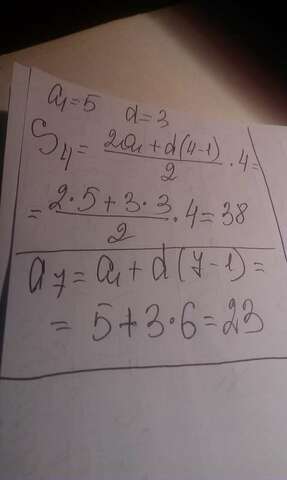 a₁=5 d=3
S₄= (2a₁+d(4-1))/2 · 4=
= (2·5+3·3)/2 · 4=38
a₇=a₁+d(7-1)=
= 5+3·6=23